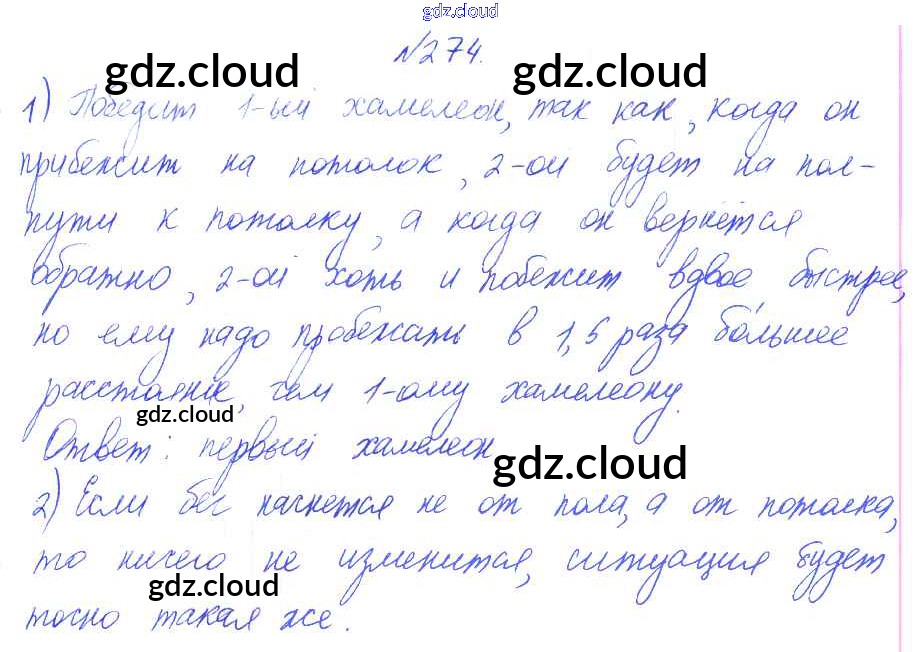 gdz.cloud
№274.
gdz.cloud gdz.cloud
1) Победит 1-ый хамелеон, так как, когда он
прибежит на потолок, 2-ой будет на пол-
пути к потолку, а когда он вернётся
обратно, 2-ой хоть и побежит вдвое быстрее,
но ему надо пробежать в 1,5 раза бо́льшее
расстояние, чем 1-ому хамелеону.
gdz.cloud
Ответ: первый хамелеон
gdz.cloud
2) Если бег начнется не от пола, а от потолка,
то ничего не изменится, ситуация будет
gdz.cloud
точно такая же.